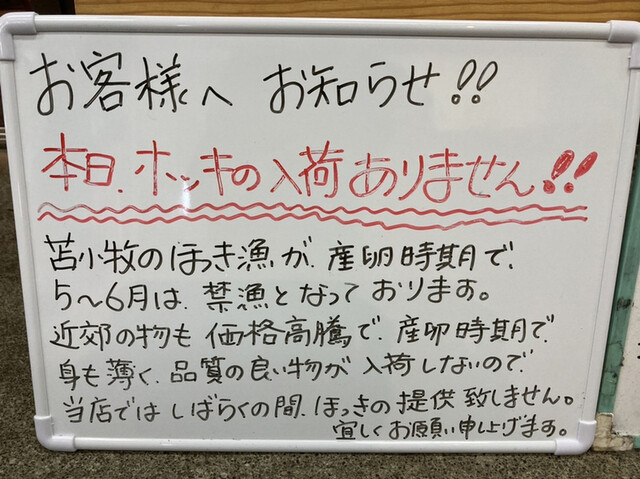 お客様へ お知らせ!!
本日、ホッキの入荷ありません!!
苫小牧のほっき漁が、産卵時期で、
5〜6月は、禁漁となっております。
近郊の物も 価格高騰で、産卵時期で、
身も薄く、品質の良い物が 入荷しないので、
当店では しばらくの間、ほっきの提供 致しません。
宜しくお願い申し上げます。